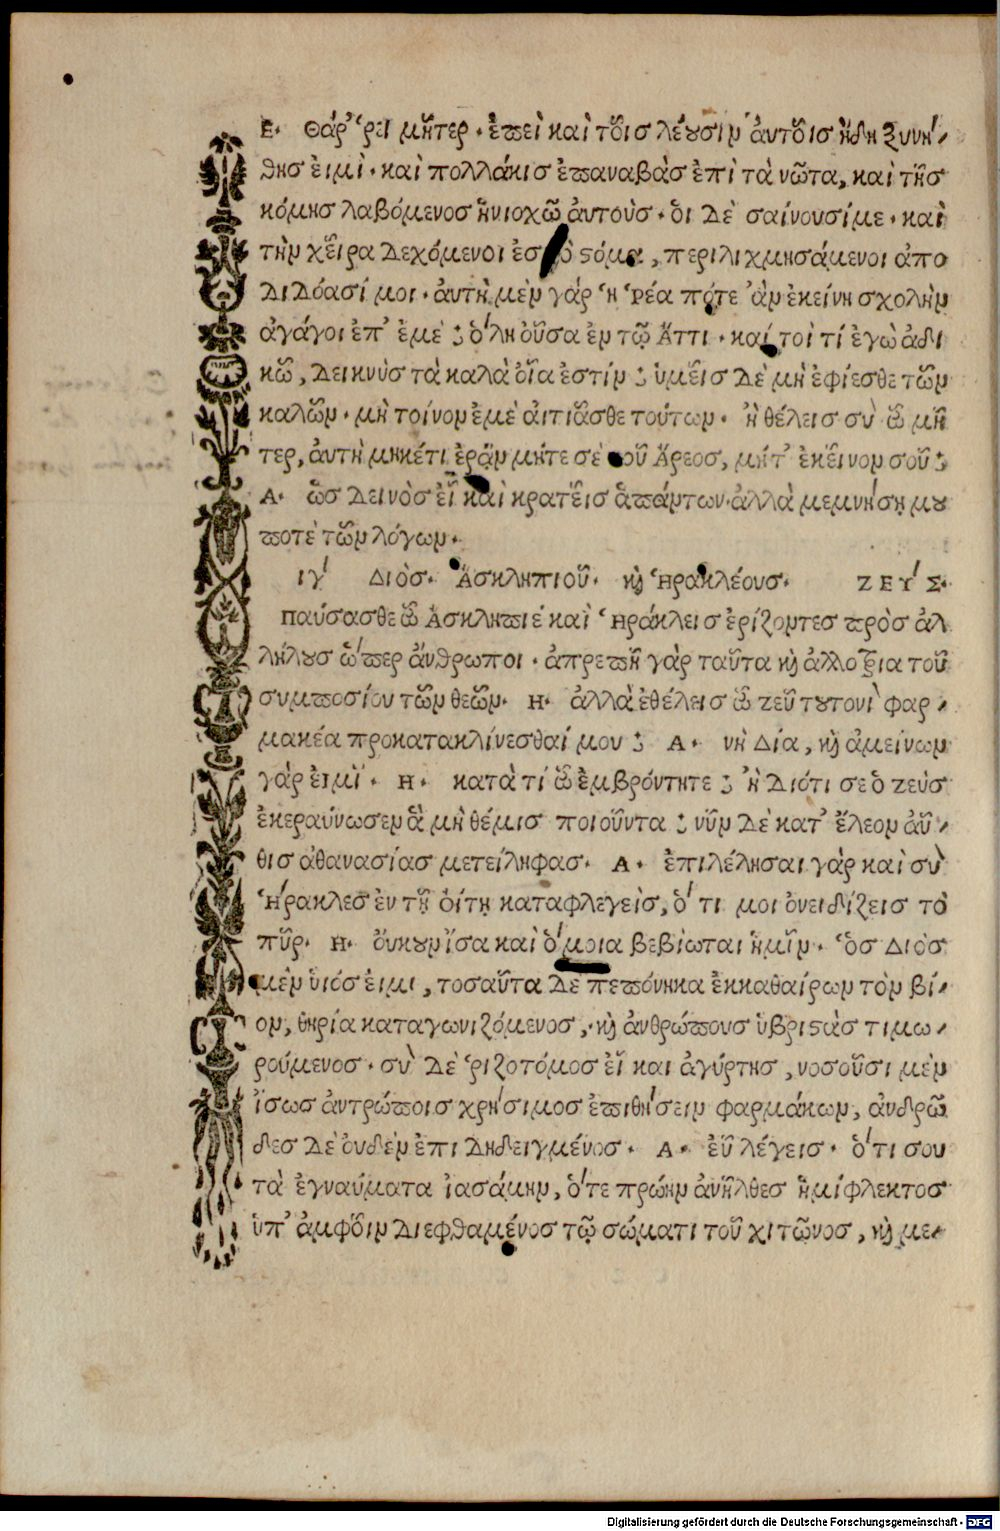 Ε· Θάῤῥει μῆτερ· ἐπεὶ καὶ τοῖς λέουσιν ἀυτοῖς ἤδη ξυνή-
θης ἐιμὶ· καὶ πολλάκις ἐπαναβὰς ἐπὶ τὰ νῶτα, καὶ τῆς
κόμης λαβόμενος ἡνιοχῶ ἀυτοὺς· ὁι δὲ σαίνουσίμε· καὶ
τὴν χεῖρα δεχόμενοι ἐς τὸ στόμα, περιλιχμησάμενοι ἀπο
διδόασί μοι· ἀυτὴ μὲν γάρ ἡ ῥέα πότε ἂν ἐκείνη σχολὴν
ἀγάγοι ἐπ' ἐμὲ ; ὅλη οὖσα ἐν τῷ Ἄττι· καί τοὶ τί ἐγὼ ἀδι
κῶ, δεικνὺς τὰ καλὰ οἷα ἐστίν ; ὑμεῖς δὲ μὴ ἐφίεσθε τῶν
καλῶν· μὴ τοίνον ἐμὲ ἀιτιᾶσθε τούτων· ἢ θέλεις σὺ ὦ μῆ
τερ, ἀυτὴ μηκέτι ἐρᾷν μήτε σὲ τοῦ Ἄρεος, μήτ' ἐκεῖινον σοῦ ;
Α· ὡς δεινὸς εἶ καὶ κρατεῖς ἁπάντων· ἀλλὰ μεμνήσῃ μου
ποτὲ τῶν λόγων·
ιγ' Διὸς· Ἀσκληπιοῦ· καὶ Ἡρακλέους· ΖΕΥΣ·
παύσασθε ὦ Ἀσκληπιέ καὶ Ἡράκλεις ἐρίζοντες πρὸς ἀλ
λήλους ὥσπερ ἄνθρωποι· ἀπρεπῆ γὰρ ταῦτα καὶ ἀλλοτρια τοῦ
συμποσίου τῶν θεῶν· Η· ἀλλὰ ἐθέλεις ὦ ζεῦ τουτονὶ φαρ-
μακέα προκατακλίνεσθαί μου ; Α· νὴ Δία, καὶ ἀμείνων
γὰρ ἐιμὶ· Η· κατὰ τί ὦ ἐμβρόντητε ; ἢ διότι σε ὁ ζεὺς
ἐκεραύνωσεν ἃ μὴ θέμις ποιοῦντα ; νῦν δὲ κατ' ἔλεον ἀῦ-
θις ἀθανασίας μετείληφας· Α· ἐπιλέλησαι γὰρ καὶ σὺ
Ἥρακλες ἐν τῇ ὀίτῃ καταφλεγεὶς, ὅ τι μοι ὀνειδίζεις τὸ
πῦρ· Η· ὄυκουν ἴσα καὶ ὅμοια βεβίωται ἡμῖν· ὃς Διὸς
μὲν ὑιός ἐιμι, τοσαῦτα δὲ πεπόνηκα ἐκκαθαίρων τὸν βί-
ον, θηρία καταγωνιζόμενος, καὶ ἀνθρώπους ὑβριστὰς τιμω-
ρούμενος· σὺ δὲ ῥιζοτόμος εἶ και ἀγύρτης, νοσοῦσι μὲν
ἴσως ἀντρώποις χρήσιμος ἐπιθήσειν φαρμάκων, ἀνδρῶ
δες δὲ ὀυδὲν ἐπιδηδειγμένος· Α· ἐῦ λέγεις· ὅτι σου
τὰ ἐγναύματα ἰασάμην, ὅτε πρώην ἀνῆλθες ἡμίφλεκτος
ὑπ' ἀμφοῖν διεφθαμένος τῷ σώματι τοῦ χιτῶνος, καὶ με-
Digitalisierung gefördert durch die Deutsche Forschungsgemeinschaft - DFG